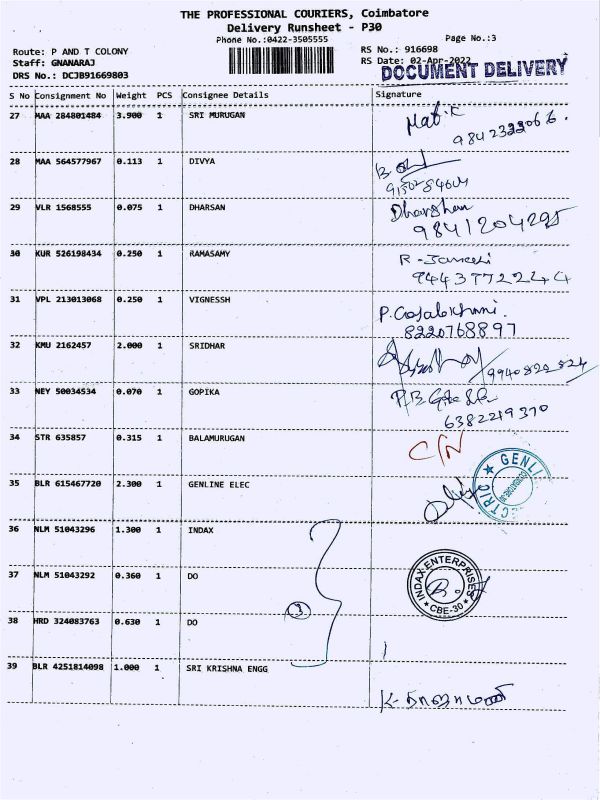 THE PROFESSIONAL COURIERS, Coimbatore
Delivery Runsheet - P30
Phone No.:0422-3505555
Page No.:3
Route: P AND T COLONY
RS No.: 916698
Staff: GNANARAJ
RS Date: 02-Apr-2022
DRS No.: DCJB91669803
DOCUMENT DELIVERY
S No Consignment No Weight PCS Consignee Details Signature
27 MAA 284801484 3.900 1 SRI MURUGAN
28 MAA 564577967 0.113 1 DIVYA
29 VLR 1568555 0.075 1 DHARSAN Dharshan
9841204295
30 KUR 526198434 0.250 1 RAMASAMY
9443772244
31 VPL 213013068 0.250 1 VIGNESSH
8220768897
32 KMU 2162457 2.000 1 SRIDHAR
9940822824
33 NEY 50034534 0.070 1 GOPIKA
6382219370
34 STR 635857 0.315 1 BALAMURUGAN C/N
35 BLR 615467720 2.300 1 GENLINE ELEC
36 NLM 51043296 1.300 1 INDAX
37 NLM 51043292 0.360 1 DO
INDAX ENTERPRISES
CBE-30
38 HRD 324083763 0.630 1 DO
3
39 BLR 4251814098 1.000 1 SRI KRISHNA ENGG